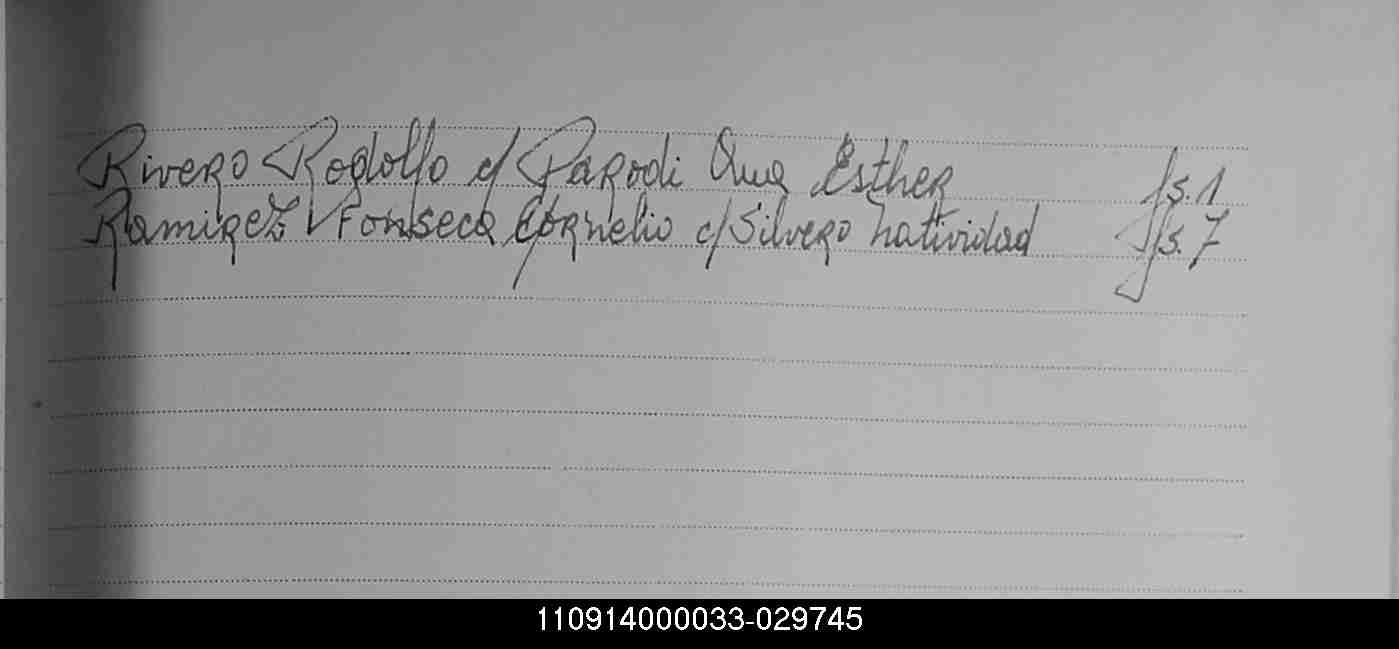 Rivero Rodolfo c/ Parodi Ana Esther fs. 1
Ramirez Fonseca Cornelio c/ Silvero Natividad fs. 7
110914000033-029745